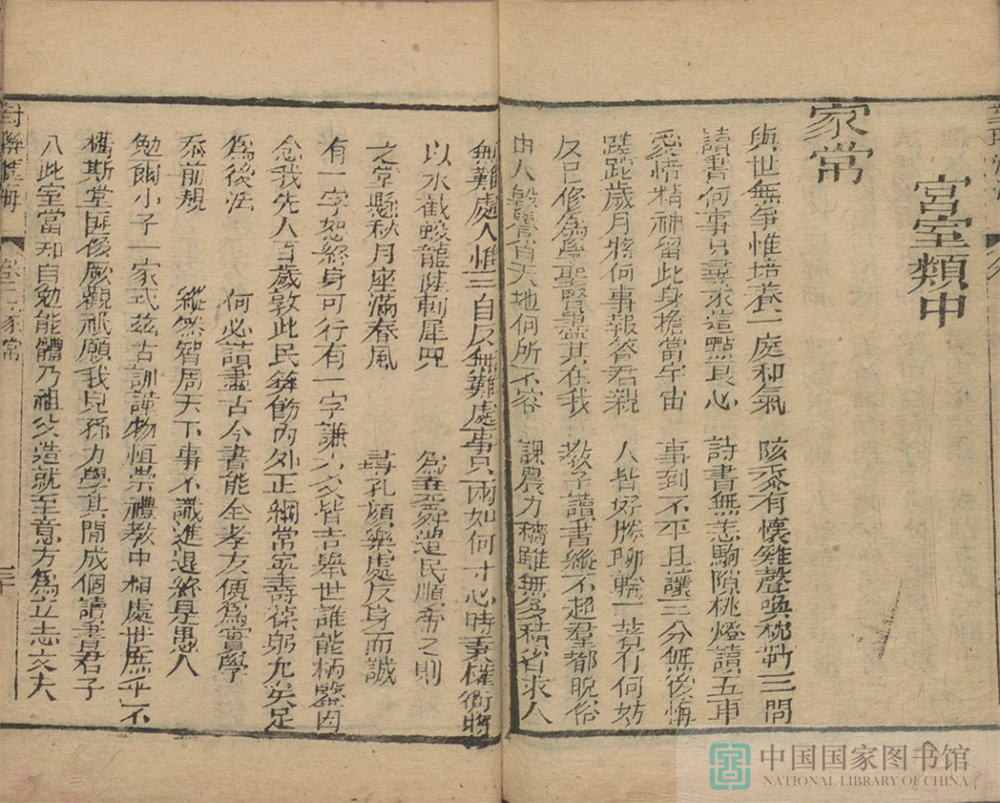 宮室類中
家常
與世無爭惟培養一庭和氣 陔黍有懷雞聲喚枕前三問
讀書何事只尋求這點良心 詩書無恙駒隙桃燈讀五車
愛惜精神留此身擔當宇宙 事到不平且讓三分無後悔
蹉跎歲月將何事報答君親 人皆好勝聊輸一著有何妨
反己修為學聖賢盡其在我 教子讀書縱不超羣都脫俗
由人毀譽看天地何所不容 課農力穡雖無多積省求人
無難處人惟三自反無難處事只兩如何 寸心時秉權衡將
以水截蛟龍陸剸犀兕 為堯舜遣民順帝之則
之堂懸秋月座滿春風 尋孔顏樂處反身而誠
有一字如終身可行有一字謙六爻皆吉舉世誰能柄鑿因
念我先人百歲敦此民餘飭內外正綱常寧壽葆躬允矣足
為後法 何必讀盡古今書能全孝友便為實學
忝前規 縱然智周天下事不識進退終是愚人
勉爾小子一家式茲古訓謹物恒崇禮教中相處世庶乎不
構斯堂匪侈厥觀祇願我兒孫力學其間成個讀書君子
入此室當知自勉能體乃祖父造就至意方為立志丈夫
對聯匯海
卷二 家常
三十
中国国家图书馆
NATIONAL LIBRARY OF CHINA